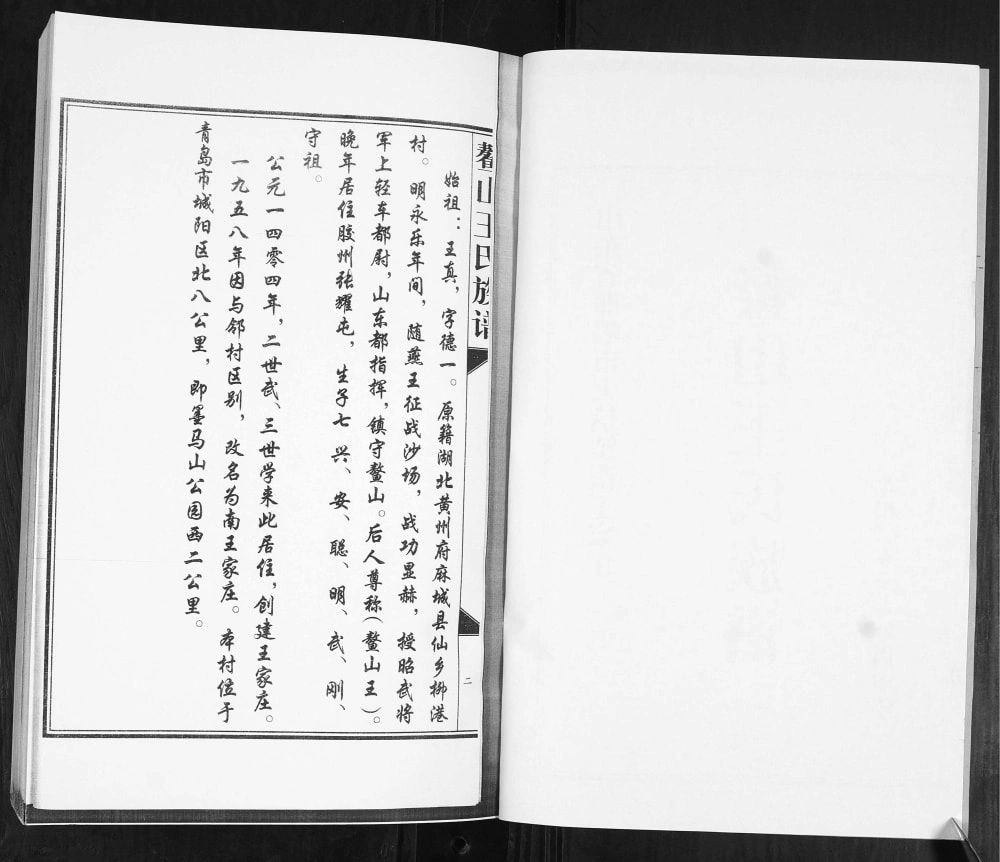 鳌山王氏族谱
二
始祖：王真，字德一。原籍湖北黄州府麻城县仙乡柳港
村。明永乐年间，随燕王征战沙场，战功显赫，授昭武将
军上轻车都尉，山东都指挥，镇守鳌山。后人尊称（鳌山王）。
晚年居住胶州张耀屯，生子七 兴、安、聪、明、武、刚、
守祖。
公元一四零四年，二世武、三世学来此居住，创建王家庄。
一九五八年因与邻村区别，改名为南王家庄。本村位于
青岛市城阳区北八公里，即墨马山公园西二公里。